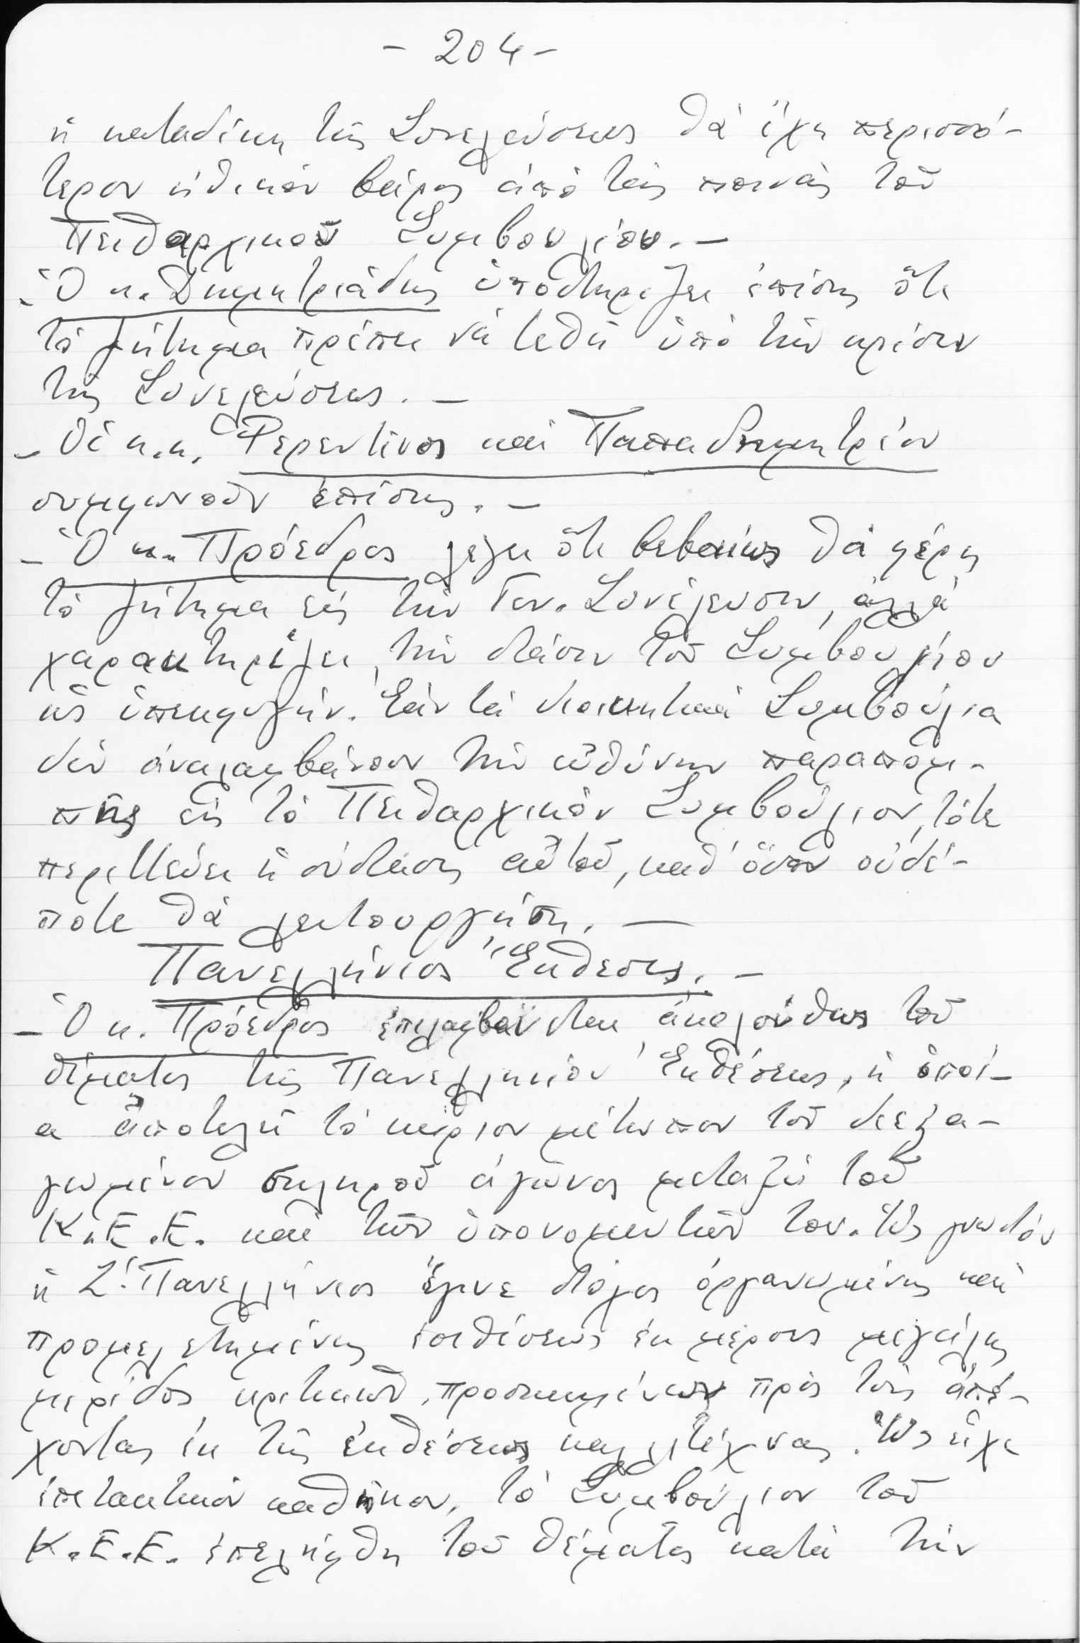 - 204 -
ἡ καταδίκη τῆς Συνελεύσεως θά ἔχῃ περισσό-
τερον ἠθικόν βάρος ἀπό τάς ποινάς τοῦ
Πειθαρχικοῦ Συμβουλίου. -
- Ὁ κ. Δημητριάδης ὑποστηρίζει ἐπίσης ὅτι
τό ζήτημα πρέπει νά τεθῆ ὑπό τήν κρίσιν
τῆς Συνελεύσεως. -
- Οἱ κ.κ. Φερεντῖνος καί Παπαδημητρίου
συμφωνοῦν ἐπίσης. -
- Ὁ κ. Πρόεδρος λέγει ὅτι βεβαίως θά φέρῃ
τό ζήτημα εἰς τήν Γεν. Συνέλευσιν, ἀλλά
χαρακτηρίζει τήν στάσιν τοῦ Συμβουλίου
ὡς ὑπεκφυγήν. Ἐάν τά διοικητικά Συμβούλια
δέν ἀναλαμβάνουν τήν εὐθύνην παραπομ-
πῆς εἰς τό Πειθαρχικόν Συμβούλιον, τότε
περιττεύει ἡ σύστασις αὐτοῦ, καθ' ὅσον οὐδέ-
ποτε θά λειτουργήσῃ. -
Πανελλήνιος Ἔκθεσις. -
- Ὁ κ. Πρόεδρος ἐπιλαμβάνεται ἀκολούθως τοῦ
θέματος τῆς Πανελληνίου Ἐκθέσεως, ἡ ὁποί-
α ἀποτελεῖ τό κύριον μέτωπον τοῦ διεξα-
γωμένου σκληροῦ ἀγῶνος μεταξύ τοῦ
Κ.Ε.Ε. καί τῶν ὑπονομευτῶν του. Ὡς γνωστόν
ἡ Ζ' Πανελλήνιος ἔγινε στόχος ὀργανωμένης καί
προμελετημένης ἐπιθέσεως ἐκ μέρους μεγάλης
μερίδος κριτικῶν, προσκειμένων πρός τούς ἀπέ-
χοντας ἐκ τῆς ἐκθέσεως καλλιτέχνας. Ὡς εἶχε
ἐπιτακτικόν καθῆκον, τό Συμβούλιον τοῦ
Κ.Ε.Ε. ἐπελήφθη τοῦ θέματος κατά τήν